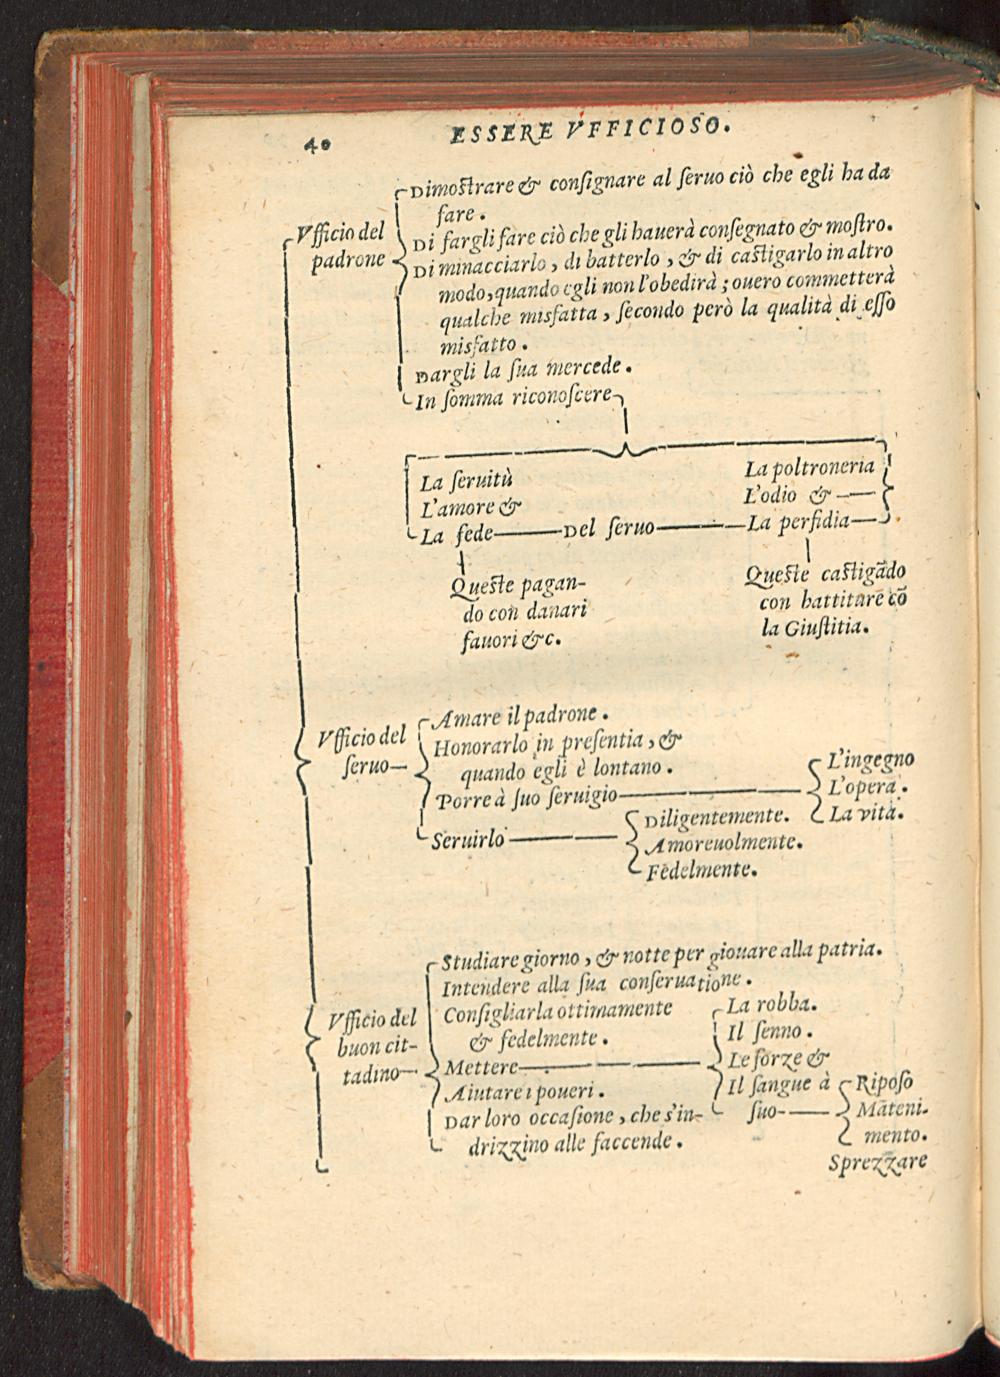 40
ESSERE VFFICIOSO.
Vfficio del
padrone
Dimoſtrare & conſignare al ſeruo ciò che egli ha da
fare.
Di fargli fare ciò che gli hauerà conſegnato & moſtro.
Di minacciarlo, di batterlo, & di caſtigarlo in altro
modo, quando egli non l'obedirà; ouero commetterà
qualche misfatta, ſecondo però la qualità di eſſo
misfatto.
Dargli la ſua mercede.
In ſomma riconoſcere
La ſeruitù
L'amore &
La fede
Del ſeruo
La poltroneria
L'odio &
La perfidia
Queſte pagan-
do con danari
fauori &c.
Queſte caſtigādo
con battiture cō
la Giuſtitia.
Vfficio del
ſeruo
Amare il padrone.
Honorarlo in preſentia, &
quando egli è lontano.
Porre à ſuo ſeruigio
L'ingegno
L'opera.
La vita.
Seruirlo
Diligentemente.
Amoreuolmente.
Fedelmente.
Vfficio del
buon cit-
tadino
Studiare giorno, & notte per giouare alla patria.
Intendere alla ſua conſeruatione.
Conſigliarla ottimamente
& fedelmente.
Mettere
La robba.
Il ſenno.
Le forze &
Il ſangue à
ſuo
Ripoſo
Māteni-
mento.
Aiutare i poueri.
Dar loro occaſione, che s'in-
drizzino alle faccende.
Sprezzare